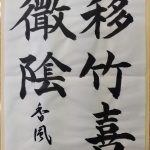 移竹喜
微陰
香風